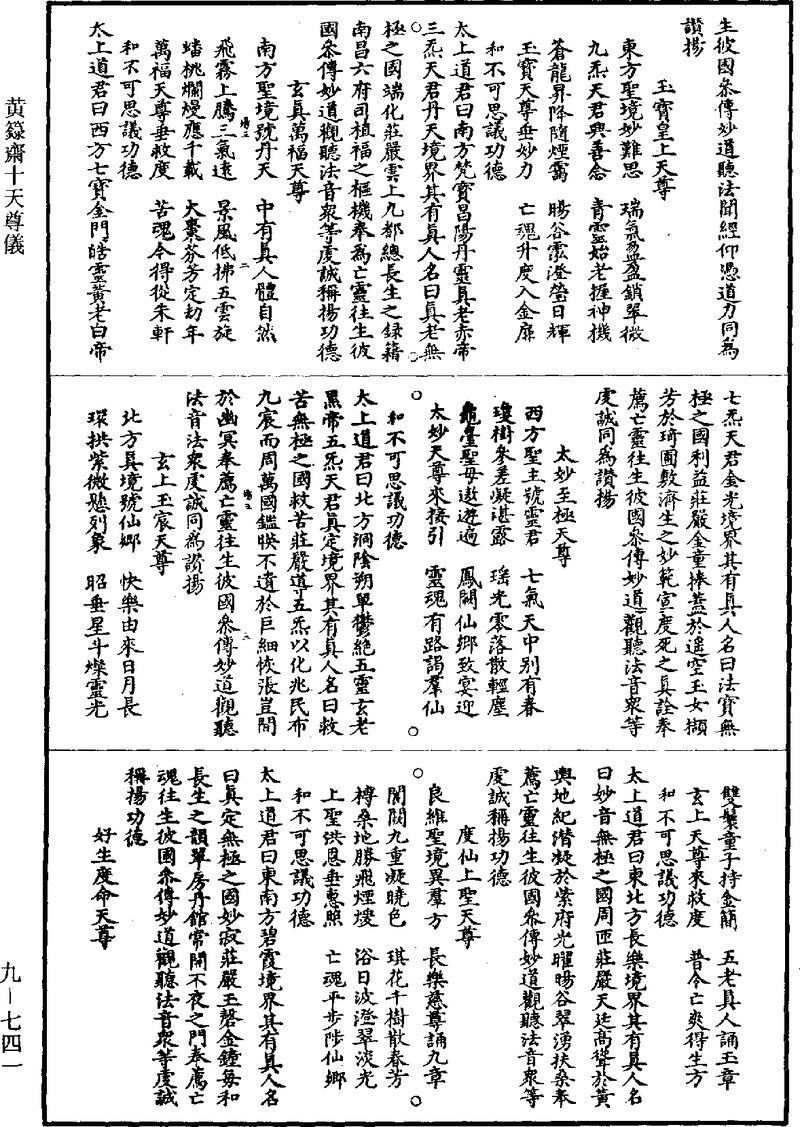 生彼國參傳妙道聽法聞經仰憑道力同為
讚揚
玉寶皇上天尊
東方聖境妙難思　瑞氣盈盈鎖翠微
九炁天君興善念　青靈始老握神機
蒼龍昇降隨煙靄　暘谷澄瑩日輝
玉寶天尊垂妙力　亡魂升度入金扉
和不可思議功德
太上道君曰南方梵寶昌陽丹靈真老赤帝
三炁天君丹天境界其有真人名曰真老無
極之國端化莊嚴雲上九都總長生之錄籍
南昌六府司植福之樞機奉為亡靈往生彼
國參傳妙道觀聽法音眾等虔誠稱揚功德
玄真萬福天尊
南方聖境號丹天　中有真人體自然
飛霧上騰三氣遠　景風低拂五雲旋
蟠桃爛熳應千載　大棗芬芳定劫年
萬福天尊垂救度　苦魂令得從朱軒
和不可思議功德
太上道君曰西方七寶金門皓靈黃老白帝
七炁天君金光境界其有真人名曰法寶無
極之國利益莊嚴金童捧蓋於遥空玉女擷
芳於琦圃敷濟生之妙範宣度死之真詮奉
薦亡靈往生彼國參傳妙道觀聽法音眾等
虔誠同為讚揚
太妙至極天尊
西方聖主號靈君　七氣天中別有春
瓊樹參差凝湛露　瑤光零落散輕塵
龜臺聖母遨遊遍　鳳闕仙鄉致宴迎
太妙天尊來接引　靈魂有路謁羣仙
和不可思議功德
太上道君曰北方洞陰朔單鬱絕五靈玄老
黑帝五炁天君真定境界其有真人名曰救
苦無極之國救苦莊嚴導五炁以化兆民布
九宸而周萬國鑑映不遺於巨細恢張豈間
於幽冥奉薦亡靈往生彼國參傳妙道觀聽
法音法眾虔誠同為讚揚
玄上玉宸天尊
北方真境號仙鄉　快樂由來日月長
環拱紫微懸列象　昭垂星斗燦靈光
雙鬟童子持金簡　五老真人誦玉章
玄上天尊來救度　昔今亡爽得生方
和不可思議功德
太上道君曰東北方長樂境界其有真人名
曰妙音無極之國周匝莊嚴天廷高聳於黃
輿地紀潛凝於紫府光曜暘谷翠湧扶桑奉
薦亡靈往生彼國參傳妙道觀聽法音眾等
虔誠稱揚功德
度仙上聖天尊
良維聖境異羣方　長樂慈尊誦九章
閶闔九重凝曉色　琪花千樹散春芳
榑桑地勝飛煙熳　浴日波澄翠淡光
上聖洪恩垂惠照　亡魂平步陟仙鄉
和不可思議功德
太上道君曰東南方碧霞境界其有真人名
曰真定無極之國妙寂莊嚴玉磬金鐘每和
長生之韻翠房丹館常開不夜之門奉薦亡
魂往生彼國參傳妙道觀聽法音眾等虔誠
稱揚功德
好生度命天尊
黃籙齋十天尊儀
九—七四一